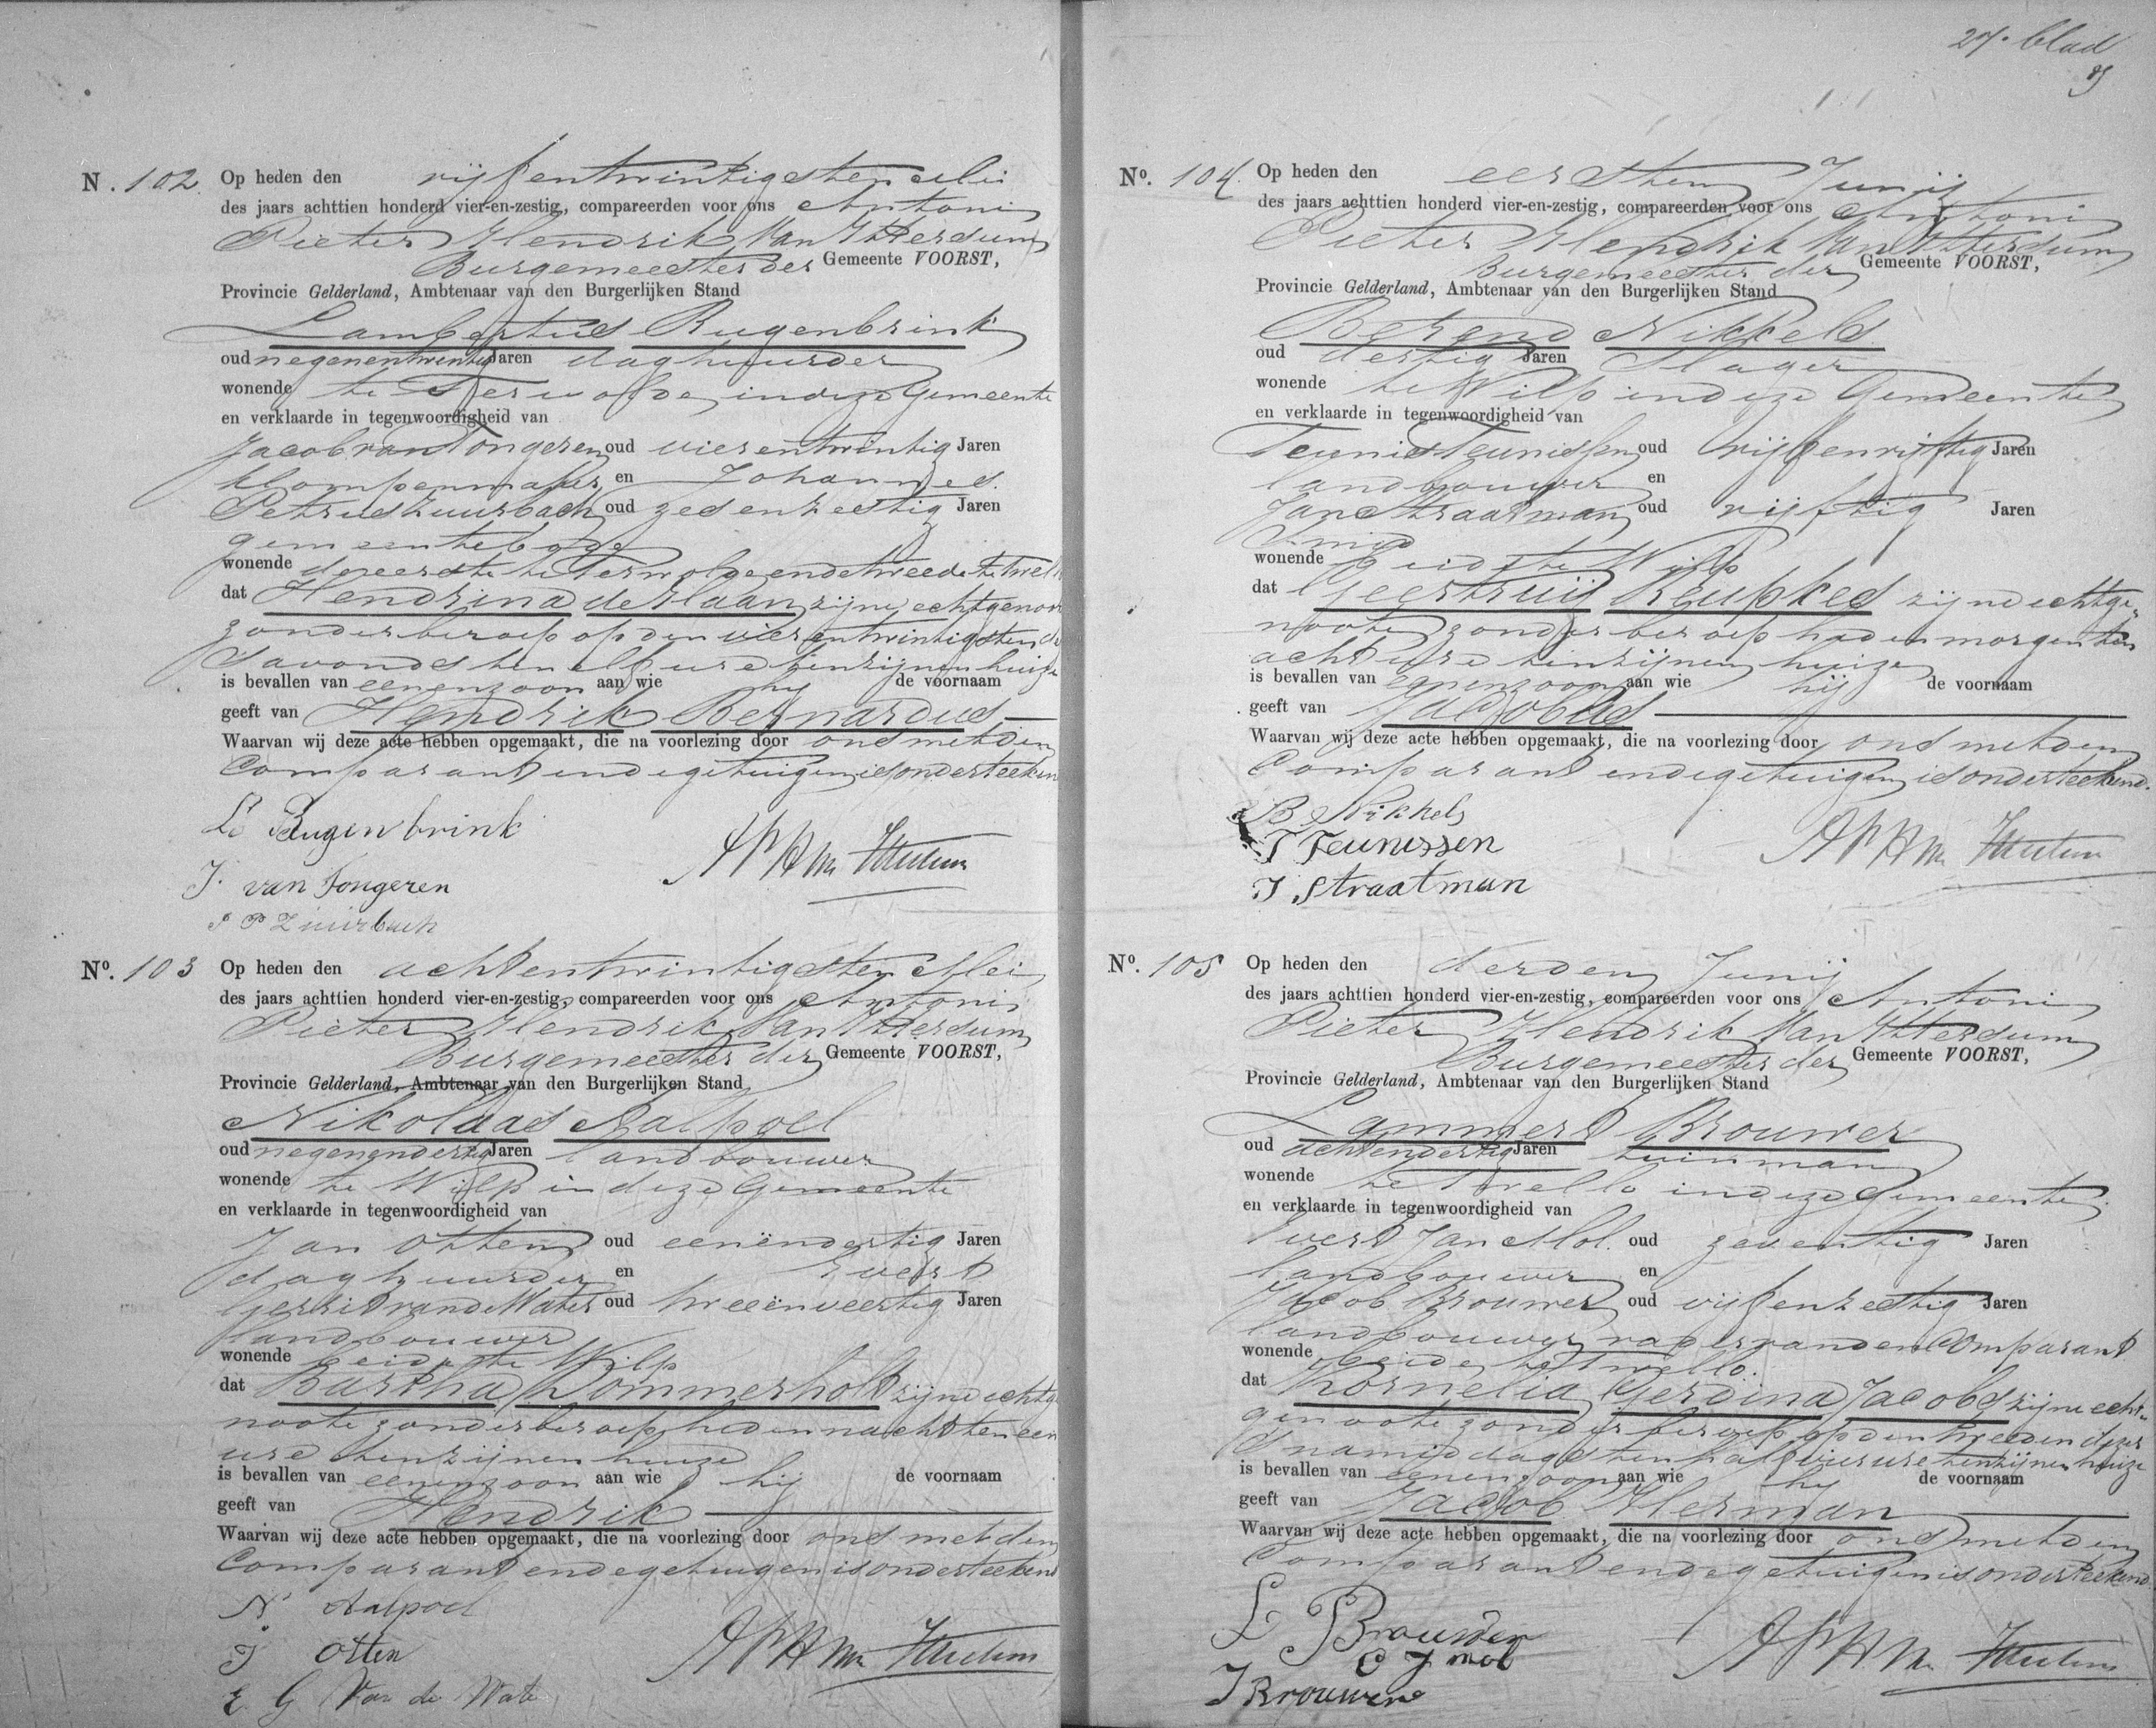 N. 102. Op heden den vijfentwintigsten Mei
des jaars achttien honderd vier-en-zestig, compareerden voor ons Antoni
Pieter Hendrik Van Itersum
Burgemeester der Gemeente VOORST,
Provincie Gelderland, Ambtenaar van den Burgerlijken Stand
Lambertus Rugenbrink
oud negenentwintig Jaren daghuurder
wonende te Terwolde in deze Gemeente
en verklaarde in tegenwoordigheid van
Jacob van Tongeren oud vierentwintig Jaren
klompenmaker en Johannes
Petrus Zuurbach oud zesenzestig Jaren
gemeentebode
wonende de eerste te Terwolde en de tweede te Twello
dat Hendrina de Haan zijne echtgenoot
zonder beroep op den vierentwintigsten
s'avonds ten elf ure ten zijnen huize
is bevallen van eenen zoon aan wie hij de voornaam
geeft van Hendrik Bernardus
Waarvan wij deze acte hebben opgemaakt, die na voorlezing door ons met den
Comparant en de getuigen is onderteekend
L Rugenbrink
J. van Tongeren
J P Zuurbach
No. 103 Op heden den achtentwintigsten Mei
des jaars achttien honderd vier-en-zestig, compareerden voor ons Antoni
Pieter Hendrik Van Itersum
Burgemeester der Gemeente VOORST,
Provincie Gelderland, Ambtenaar van den Burgerlijken Stand
Nikolaas Aalpoel
oud negenendertig Jaren landbouwer
wonende te Wilp in deze Gemeente
en verklaarde in tegenwoordigheid van
Jan Otten oud eenendertig Jaren
daghuurder en Evert
Gerrit van de Water oud tweeënveertig Jaren
landbouwer
wonende beide te Wilp
dat Bartha Dommerholt zijne echtge
noote zonder beroep heden nacht ten een
ure ten zijnen huize
is bevallen van eenen zoon aan wie hij de voornaam
geeft van Hendrik
Waarvan wij deze acte hebben opgemaakt, die na voorlezing door ons met den
Comparant en de getuigen is onderteekend
N Aalpoel
J Otten
E. G Van de Wate
27e blad
No. 104. Op heden den eersten Junij
des jaars achttien honderd vier-en-zestig, compareerden voor ons Antoni
Pieter Hendrik Van Itersum
Burgemeester der Gemeente VOORST,
Provincie Gelderland, Ambtenaar van den Burgerlijken Stand
Berend Nikkels
oud dertig Jaren Slager
wonende te Wilp in deze Gemeente
en verklaarde in tegenwoordigheid van
Teunis Teunissen oud vijfenvijftig Jaren
landbouwer en
Jan Straatman oud vijftig Jaren
Smid
wonende beide te Wilp
dat Geertruij Reupkes zijne echtge-
noote zonder beroep heden morgen ten
acht ure ten zijnen huize
is bevallen van eenen zoon aan wie hij de voornaam
geeft van Jacobus
Waarvan wij deze acte hebben opgemaakt, die na voorlezing door ons met den
Comparant en de getuigen is onderteekend.
B Nikkels
T Teunissen
J Straatman
No. 105 Op heden den derden Junij
des jaars achttien honderd vier-en-zestig, compareerden voor ons Antoni
Pieter Hendrik Van Itersum
Burgemeester der Gemeente VOORST,
Provincie Gelderland, Ambtenaar van den Burgerlijken Stand
Lammert Brouwer
oud achtendertig Jaren tuinman
wonende te Twello in deze Gemeente
en verklaarde in tegenwoordigheid van
Evert Jan Mol. oud zeventig Jaren
landbouwer en
Jacob Brouwer oud vijfenzestig Jaren
landbouwer vader van den Comparant
wonende beide te Twello.
dat Kornelia Gerdina Jacobs zijne echt-
genoote zonder beroep op den tweeden dezer
s'namiddags ten half vier ure ten zijnen huize
is bevallen van eenen zoon aan wie hij de voornaam
geeft van Jacob Herman
Waarvan wij deze acte hebben opgemaakt, die na voorlezing door ons met den
Comparant en de getuigen is onderteekend
L Brouwer
E J mol
J Brouwer